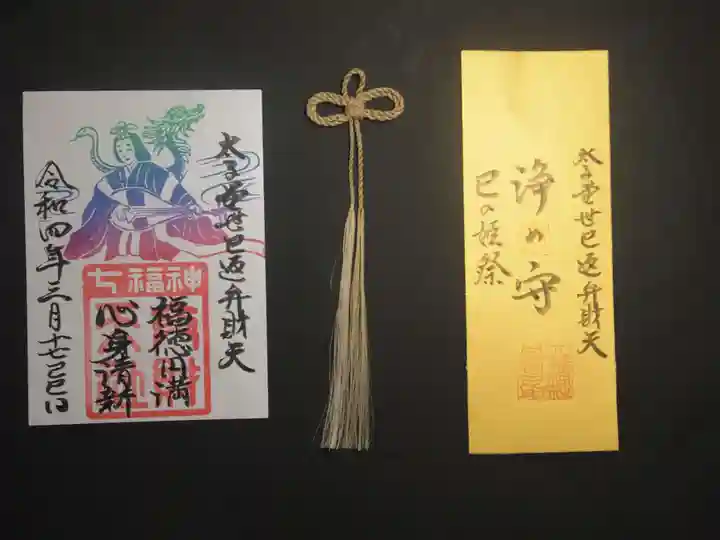 太子堂せせ巳返弁財天
七福神
福徳円満
心身清新
令和四年三月十七己巳日
太子堂せせ巳返弁財天
浄め守
巳の姫祭